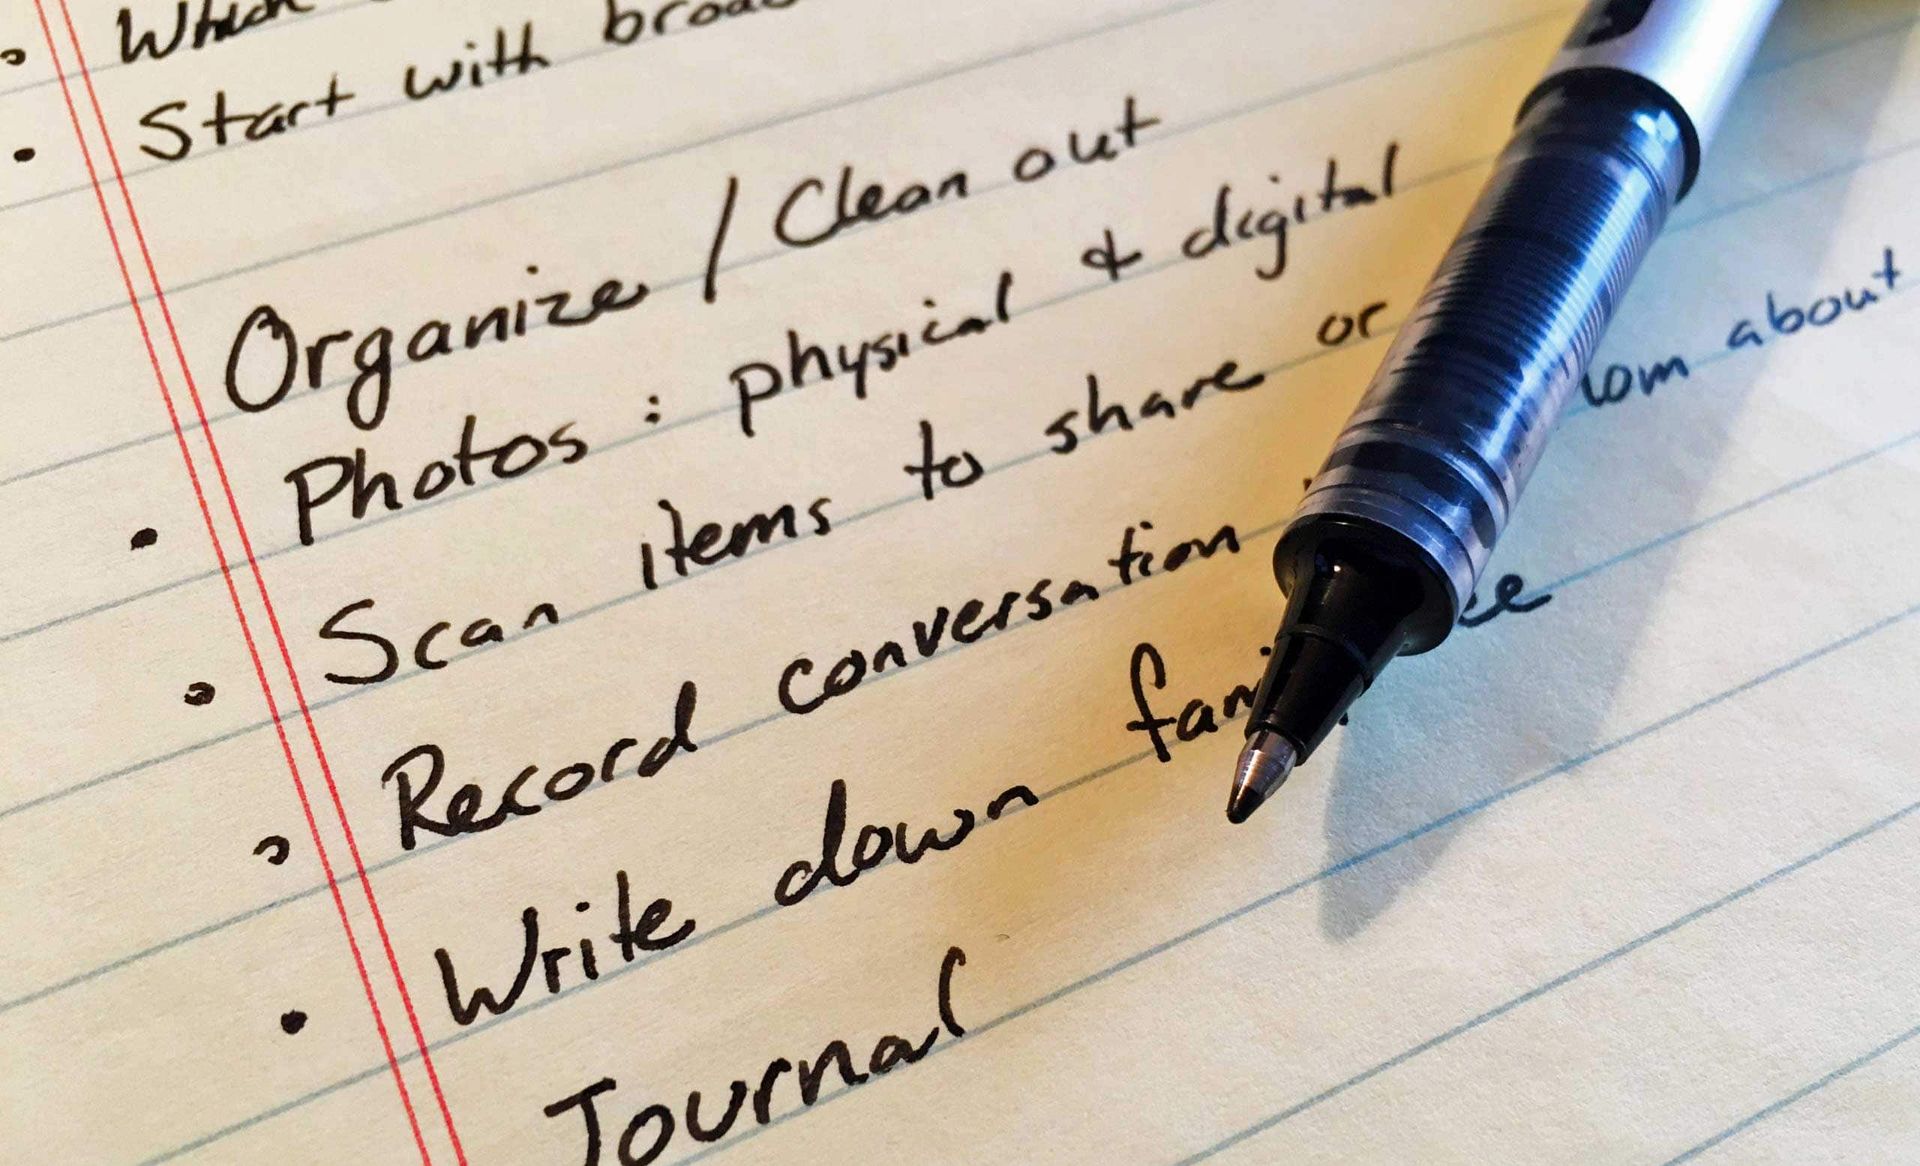 Start with
Organize / Clean out
Photos: physical & digital
Scan items to share or
Record conversation about
Write down
Journal